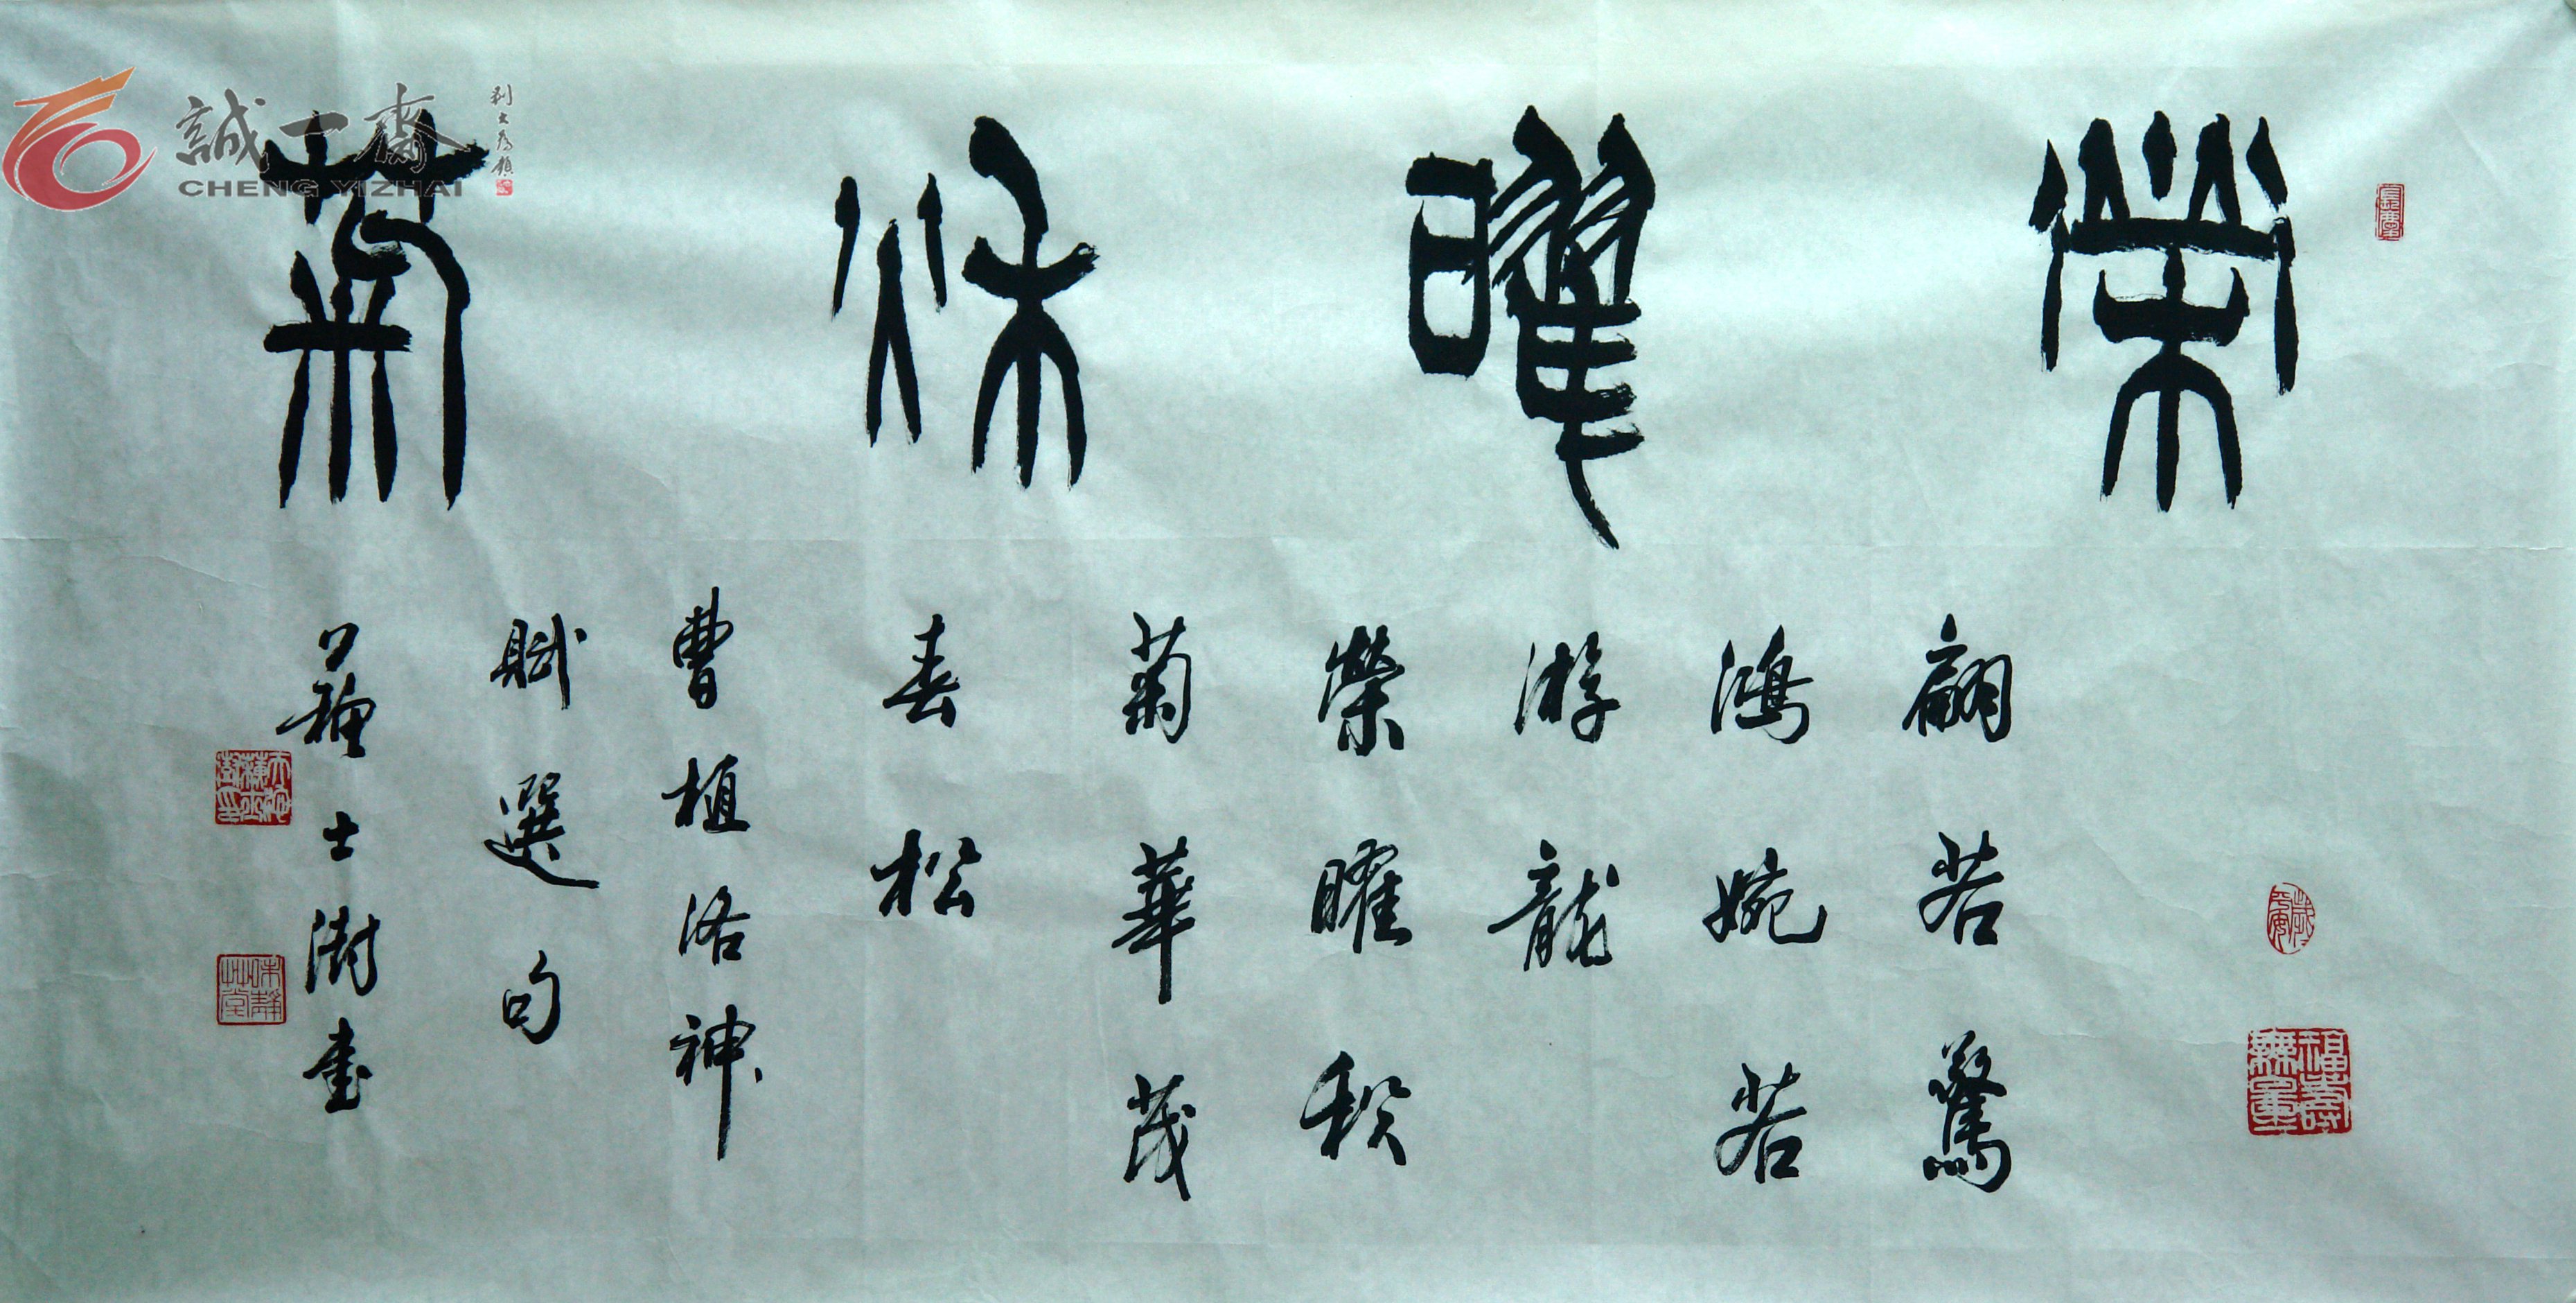 榮曜秋菊
翩若驚
鴻婉若
游龍
榮曜秋
菊華茂
春松
曹植洛神
賦選句
蘇士澍書
福壽無量
誠一齋
CHENG YIZHAI